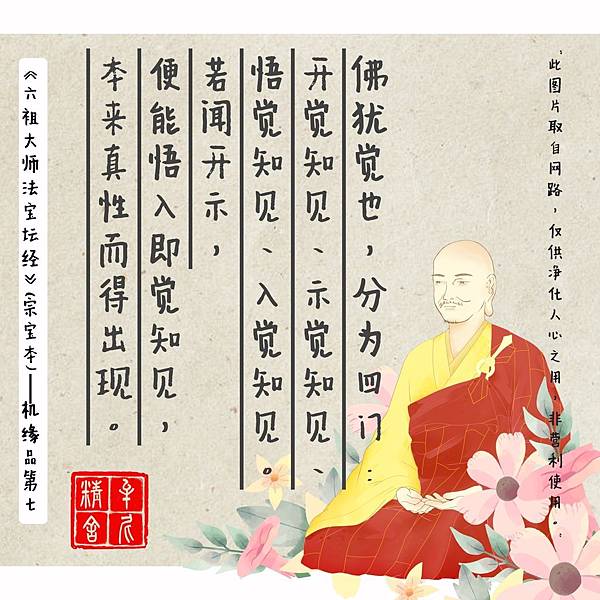 此图片取自网路，仅供净化人心之用，非营利使用。
佛犹觉也，分为四门：
开觉知见、示觉知见、
悟觉知见、入觉知见。
若闻开示，
便能悟入即觉知见，
本来真性而得出现。
《六祖大师法宝坛经》(宗宝本)——机缘品第七
精舍